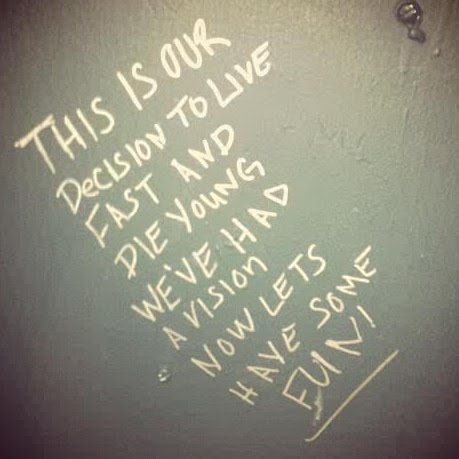 THIS IS OUR
DECISION TO LIVE
FAST AND
DIE YOUNG
WE'VE HAD
A VISION
NOW LETS
HAVE SOME
FUN!